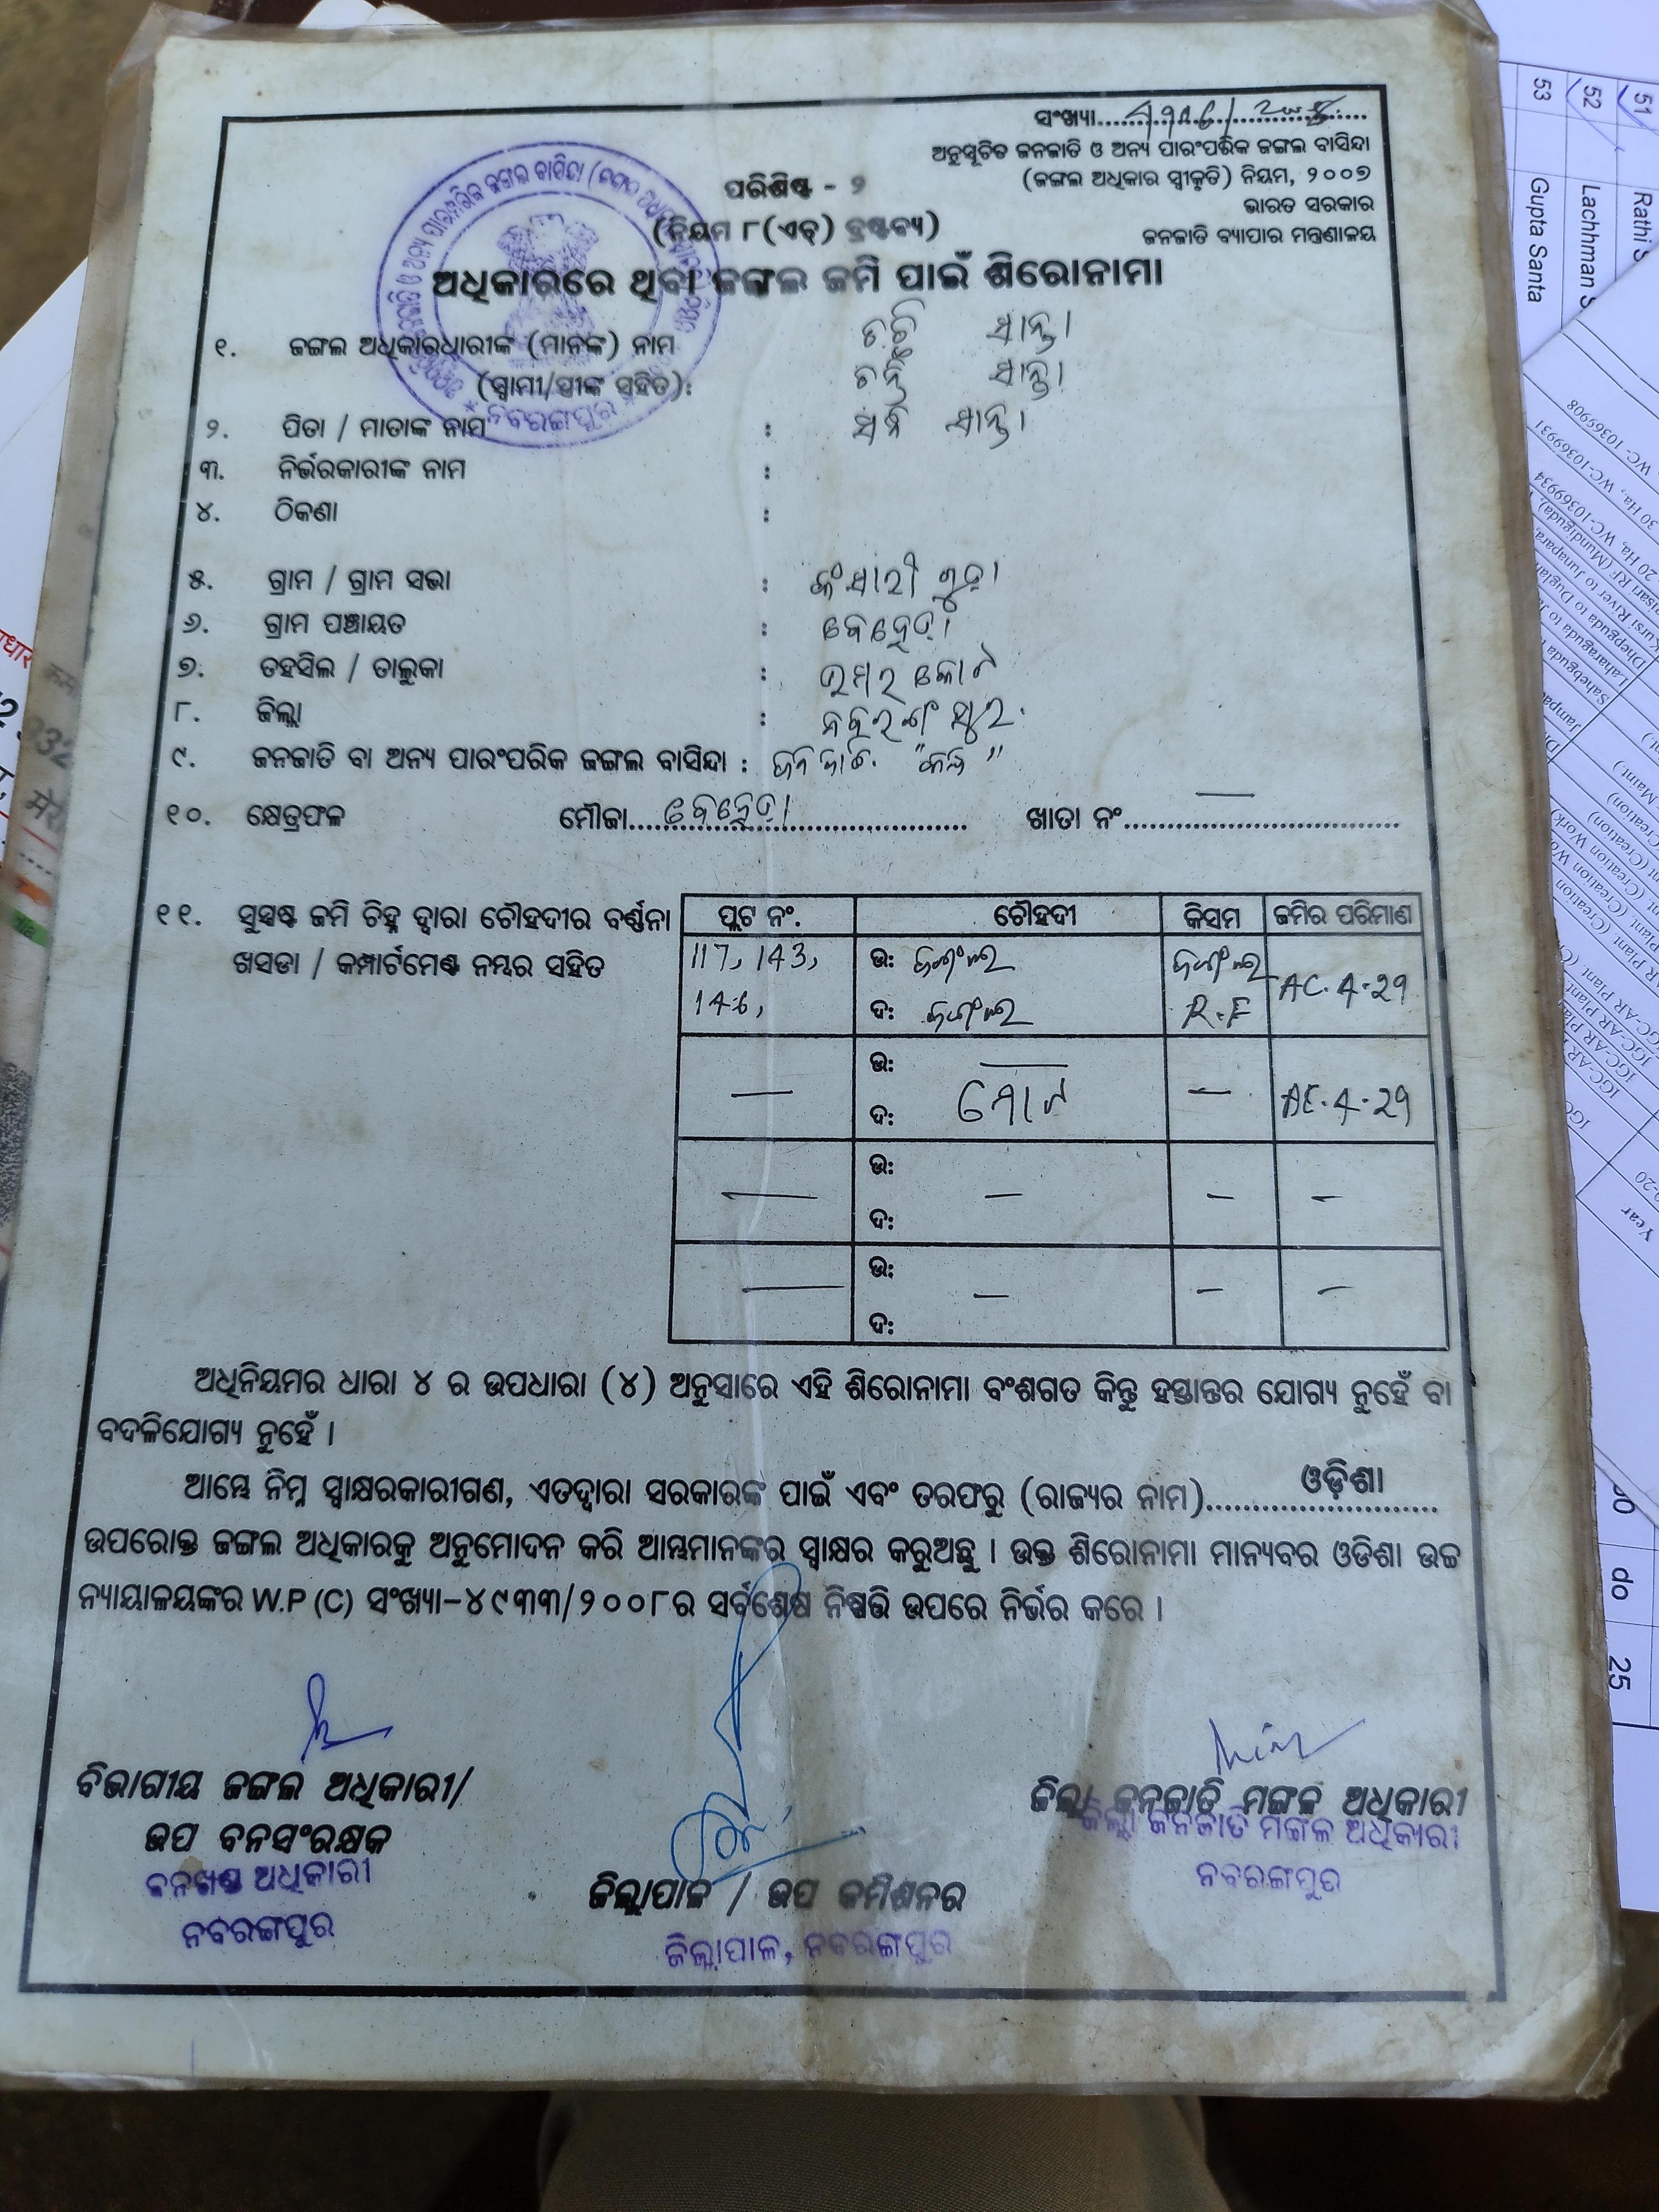 ସଂଖ୍ୟା
ଅନୁସୂଚିତ ଜନଜାତି ଓ ଅନ୍ୟ ପାରଂପରିକ ଜଙ୍ଗଲ ବାସିନ୍ଦା
(ଜଙ୍ଗଲ ଅଧିକାର ସ୍ୱୀକୃତି) ନିୟମ, ୨୦୦୭
ଭାରତ ସରକାର
ଜନଜାତି ବ୍ୟାପାର ମନ୍ତ୍ରଣାଳୟ
ପରିଶିଷ୍ଟ - ୨
(ନିୟମ ୮(ଏଚ୍) ଦ୍ରଷ୍ଟବ୍ୟ)
ଅଧିକାରରେ ଥିବା ଜଙ୍ଗଲ ଜମି ପାଇଁ ଶିରୋନାମା
୧. ଜଙ୍ଗଲ ଅଧିକାରଧାରୀଙ୍କ (ମାନଙ୍କ) ନାମ ସାନ୍ତା
(ସ୍ୱାମୀ/ସ୍ତ୍ରୀଙ୍କ ସହିତ): ସାନ୍ତା
୨. ପିତା / ମାତାଙ୍କ ନାମ : ସାନ୍ତା
୩. ନିର୍ଭରକାରୀଙ୍କ ନାମ :
୪. ଠିକଣା :
୫. ଗ୍ରାମ / ଗ୍ରାମ ସଭା : କଂସାରୀ ଗୁଡା
୬. ଗ୍ରାମ ପଞ୍ଚାୟତ : ବେହେଡା
୭. ତହସିଲ / ତାଲୁକା : ଉମରକୋଟ
୮. ଜିଲ୍ଲା : ନବରଙ୍ଗପୁର
୯. ଜନଜାତି ବା ଅନ୍ୟ ପାରଂପରିକ ଜଙ୍ଗଲ ବାସିନ୍ଦା : ଜନଜାତି
୧୦. କ୍ଷେତ୍ରଫଳ ମୌଜା ବେହେଡା ଖାତା ନଂ —
୧୧. ସୁସ୍ପଷ୍ଟ ଜମି ଚିହ୍ନ ଦ୍ୱାରା ଚୌହଦୀର ବର୍ଣ୍ଣନା
ଖସଡା / କମ୍ପାର୍ଟମେଣ୍ଟ ନମ୍ଭର ସହିତ
ପ୍ଲଟ ନଂ. ଚୌହଦୀ କିସମ ଜମିର ପରିମାଣ
117, 143, ଉ: ଜଙ୍ଗଲ ଜଙ୍ଗଲ AC. 4.29
146, ଦ: ଜଙ୍ଗଲ R.F
— ଉ: — — AC. 4.29
ଦ: ମୋଟ
— ଉ: — — —
ଦ:
— ଉ: — — —
ଦ:
ଅଧିନିୟମର ଧାରା ୪ ର ଉପଧାରା (୪) ଅନୁସାରେ ଏହି ଶିରୋନାମା ବଂଶଗତ କିନ୍ତୁ ହସ୍ତାନ୍ତର ଯୋଗ୍ୟ ନୁହେଁ ବା
ବଦଳିଯୋଗ୍ୟ ନୁହେଁ ।
ଆମ୍ଭେ ନିମ୍ନ ସ୍ୱାକ୍ଷରକାରୀଗଣ, ଏତଦ୍ୱାରା ସରକାରଙ୍କ ପାଇଁ ଏବଂ ତରଫରୁ (ରାଜ୍ୟର ନାମ) ଓଡ଼ିଶା
ଉପରୋକ୍ତ ଜଙ୍ଗଲ ଅଧିକାରକୁ ଅନୁମୋଦନ କରି ଆମ୍ଭମାନଙ୍କର ସ୍ୱାକ୍ଷର କରୁଅଛୁ । ଉକ୍ତ ଶିରୋନାମା ମାନ୍ୟବର ଓଡିଶା ଉଚ୍ଚ
ନ୍ୟାୟାଳୟଙ୍କର W.P (C) ସଂଖ୍ୟା–୪୯୩୩/୨୦୦୮ର ସର୍ବଶେଷ ନିଷ୍ପତ୍ତି ଉପରେ ନିର୍ଭର କରେ ।
ବିଭାଗୀୟ ଜଙ୍ଗଲ ଅଧିକାରୀ/
ଉପ ବନସଂରକ୍ଷକ
ବନଖଣ୍ଡ ଅଧିକାରୀ
ନବରଙ୍ଗପୁର
ଜିଲ୍ଲାପାଳ / ଉପ କମିଶନର
ଜିଲ୍ଲାପାଳ, ନବରଙ୍ଗପୁର
ଜିଲ୍ଲା ଜନଜାତି ମଙ୍ଗଳ ଅଧିକାରୀ
ଜିଲ୍ଲା ଜନଜାତି ମଙ୍ଗଳ ଅଧିକାରୀ
ନବରଙ୍ଗପୁର
51 Rathi S
52 Lachhman S
53 Gupta Santa
do
25